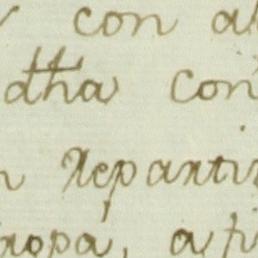 con al
dha con
n repartir
ropa, a fi